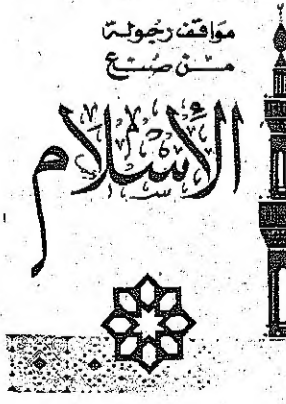 مواقف رجولة
من صنع
الإسلام